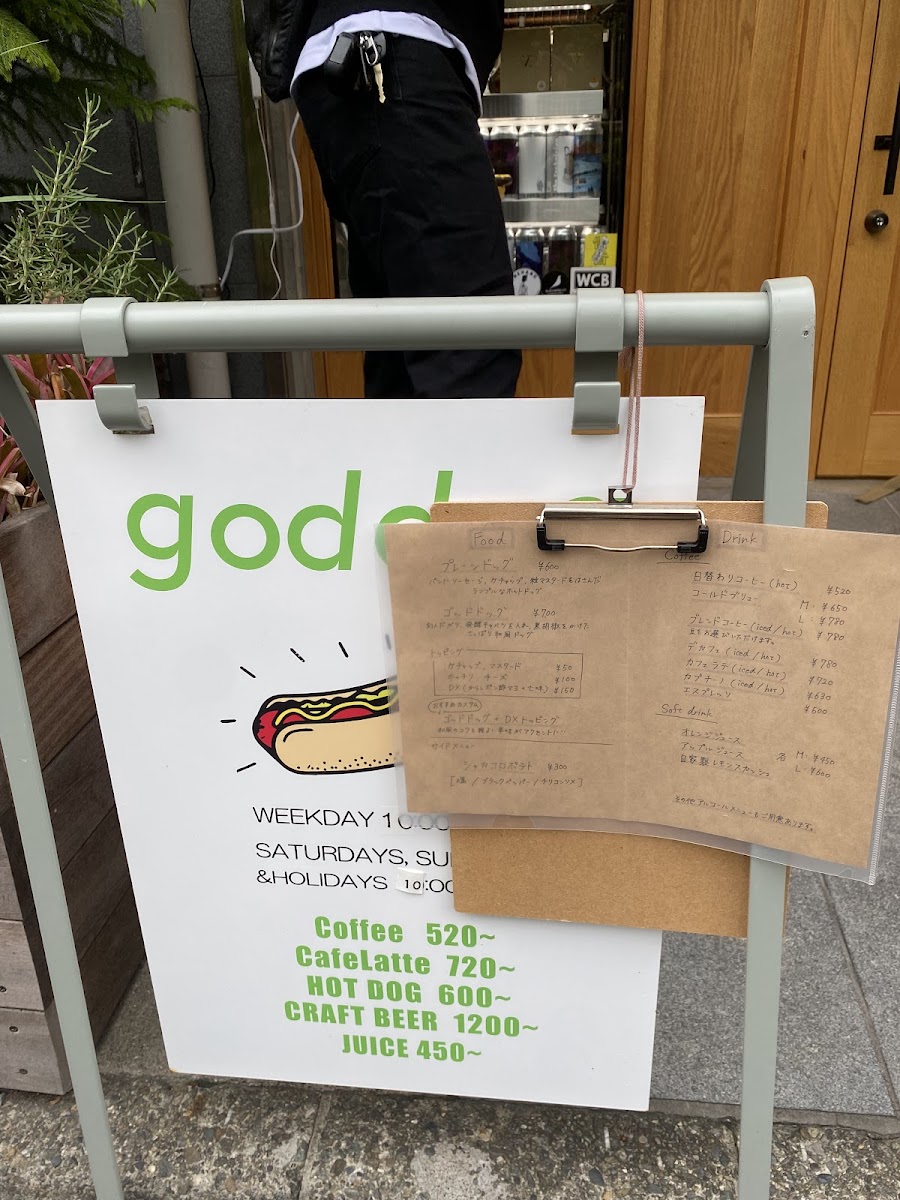 WCB
godd
Food
プレーンドッグ ¥600
シンプルなホットドッグ
ゴッドドッグ ¥700
トッピング
ケチャップ、マスタード ¥50
チーズ ¥100
¥150
おすすめカスタム
ゴッドドッグ + DXトッピング
サイドメニュー
¥300
[塩 / ブラックペッパー / チリコンソメ]
Drink
Coffee
日替わりコーヒー (hot) ¥520
コールドブリュー M・¥650
L・¥780
ブレンドコーヒー (iced/hot) ¥780
豆をお選びいただけます。
デカフェ (iced/hot) ¥780
カフェラテ (iced/hot) ¥720
カプチーノ (iced/hot) ¥630
エスプレッソ ¥500
Soft drink
オレンジジュース
アップルジュース 各 M・¥450
自家製レモンスカッシュ L・¥600
その他アルコールメニューもご用意あります。
WEEKDAY 10:00
SATURDAYS, SU
&HOLIDAYS 10:00
Coffee 520~
CafeLatte 720~
HOT DOG 600~
CRAFT BEER 1200~
JUICE 450~